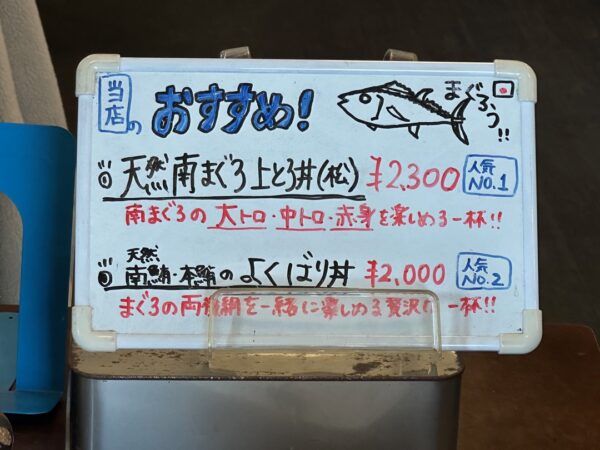 当店の おすすめ!
まぐろっ!!
天然南まぐろ上とろ丼(松) ¥2,300 人気NO.1
南まぐろの大トロ・中トロ・赤身を楽しめる一杯!!
天然
南鮪・本鮪のよくばり丼 ¥2,000 人気NO.2
まぐろの両横綱を一緒に楽しめる贅沢な一杯!!